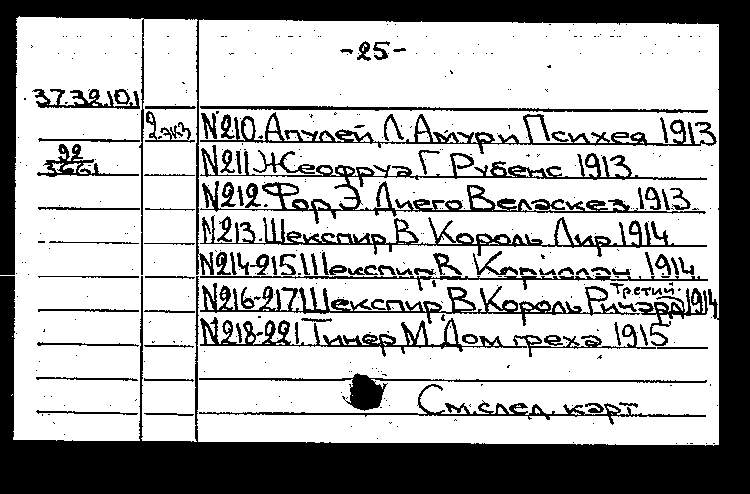 -25-
37.32.10.1
2.экз №210. Апулей, Л. Амур и Психея 1913
92 №211. Жеофруа, Г. Рубенс. 1913.
3661
№212. Фор, Э. Диего Веласкез 1913
№213. Шекспир, В. Король Лир. 1914.
№214-215. Шекспир, В. Кориолан. 1914.
№216-217. Шекспир, В. Король Ричард Третий 1914
№218-221. Тинер, М. Дом греха 1915
См. след. карт